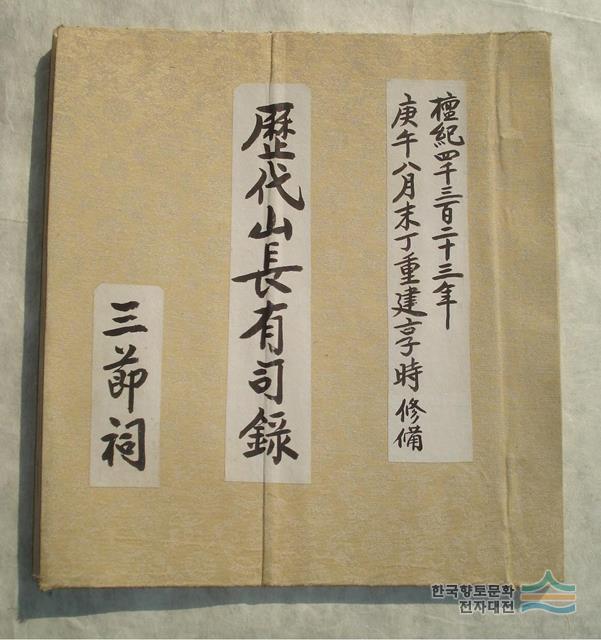 檀紀四千三百二十三年
庚午八月末丁重建享時修備
歷代山長有司錄
三節祠
한국향토문화
전자대전